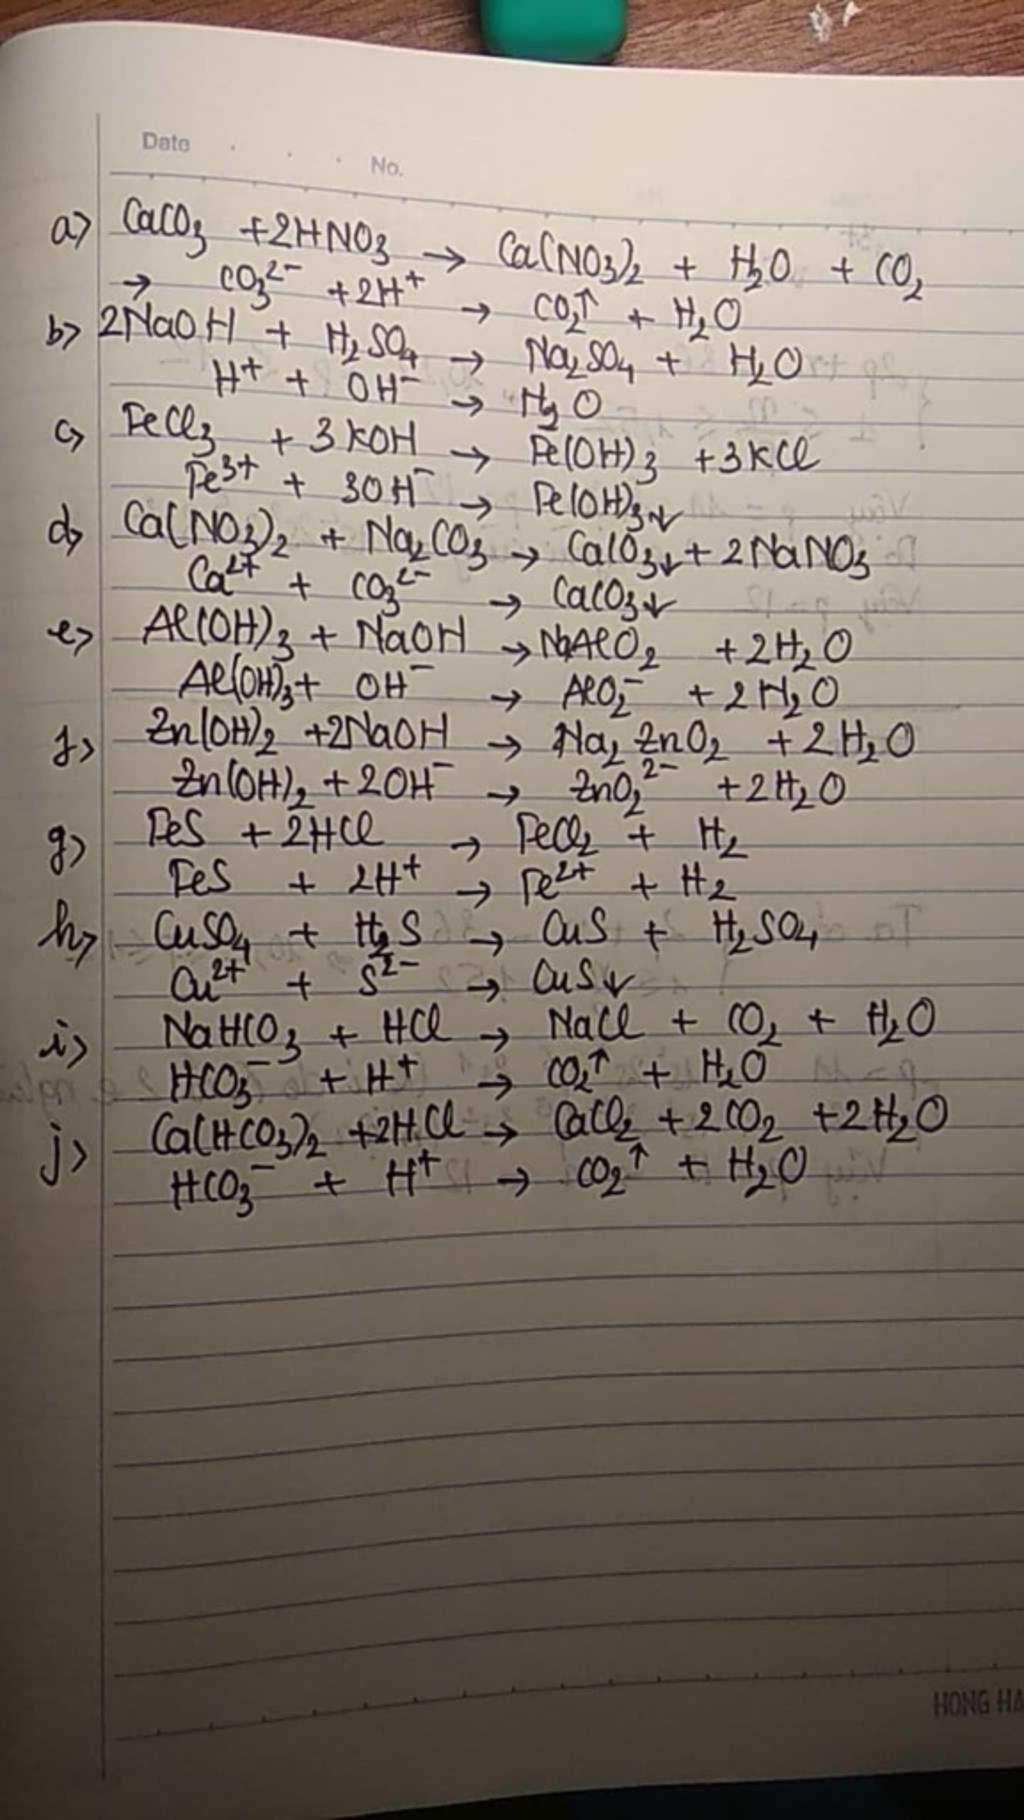 Date
No.
a) CaCO₃ + 2HNO₃ → Ca(NO₃)₂ + H₂O + CO₂
→ CO₃²⁻ + 2H⁺ → CO₂↑ + H₂O
b) 2NaOH + H₂SO₄ → Na₂SO₄ + H₂O
H⁺ + OH⁻ → H₂O
c) FeCl₃ + 3KOH → Fe(OH)₃ + 3KCl
Fe³⁺ + 3OH⁻ → Fe(OH)₃↓
d) Ca(NO₃)₂ + Na₂CO₃ → CaCO₃↓ + 2NaNO₃
Ca²⁺ + CO₃²⁻ → CaCO₃↓
e) Al(OH)₃ + NaOH → NaAlO₂ + 2H₂O
Al(OH)₃ + OH⁻ → AlO₂⁻ + 2H₂O
f) Zn(OH)₂ + 2NaOH → Na₂ZnO₂ + 2H₂O
Zn(OH)₂ + 2OH⁻ → ZnO₂²⁻ + 2H₂O
g) FeS + 2HCl → FeCl₂ + H₂
FeS + 2H⁺ → Fe²⁺ + H₂
h) CuSO₄ + H₂S → CuS + H₂SO₄
Cu²⁺ + S²⁻ → CuS↓
i) NaHCO₃ + HCl → NaCl + CO₂ + H₂O
HCO₃⁻ + H⁺ → CO₂↑ + H₂O
j) Ca(HCO₃)₂ + 2HCl → CaCl₂ + 2CO₂ + 2H₂O
HCO₃⁻ + H⁺ → CO₂↑ + H₂O
HONG HA